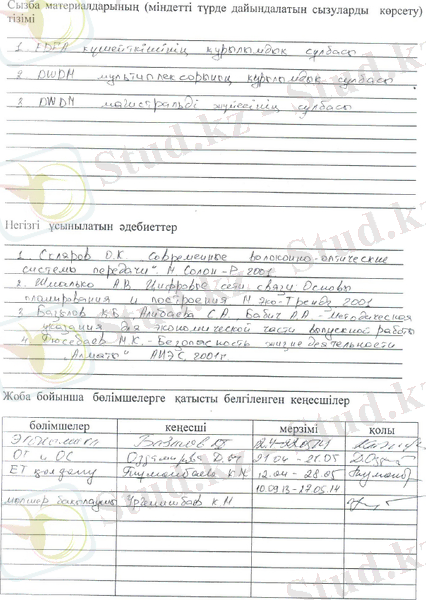 Сызба материалдарының (міндетті түрде дайындалатын сызуларды көрсету)
тізімі
1. EDFA күшейткішінің құрылымдық сұлбасы
2. DWDM мультиплексорының құрылымдық сұлбасы
3. DWDM магистральді жүйесінің сұлбасы
Негізгі ұсынылатын әдебиеттер
1. Скляров О.К Современные волоконно-оптические
системы передачи". М Солон-Р, 2001
2. Шмалько А.В. Цифровые сети связи: Основы
планирования и построения М. Эко-Трендз, 2001
3. Алибаева С.А., Бабич А.А. - методическая
указания для экономической части выпускной работы
4. М.К. - Безопасность жизнедеятельности
"Алматы" АИЭС, 2001г.
Жоба бойынша бөлімшелерге қатысты белгіленген кеңесшілер
бөлімшелер кеңесші мерзімі қолы
Экономика
ОТ и ОС Д.
ЕТ қолдану К.М 12.04 - 28.05
10.09.13-27.05.14
К.М
Stud.kz